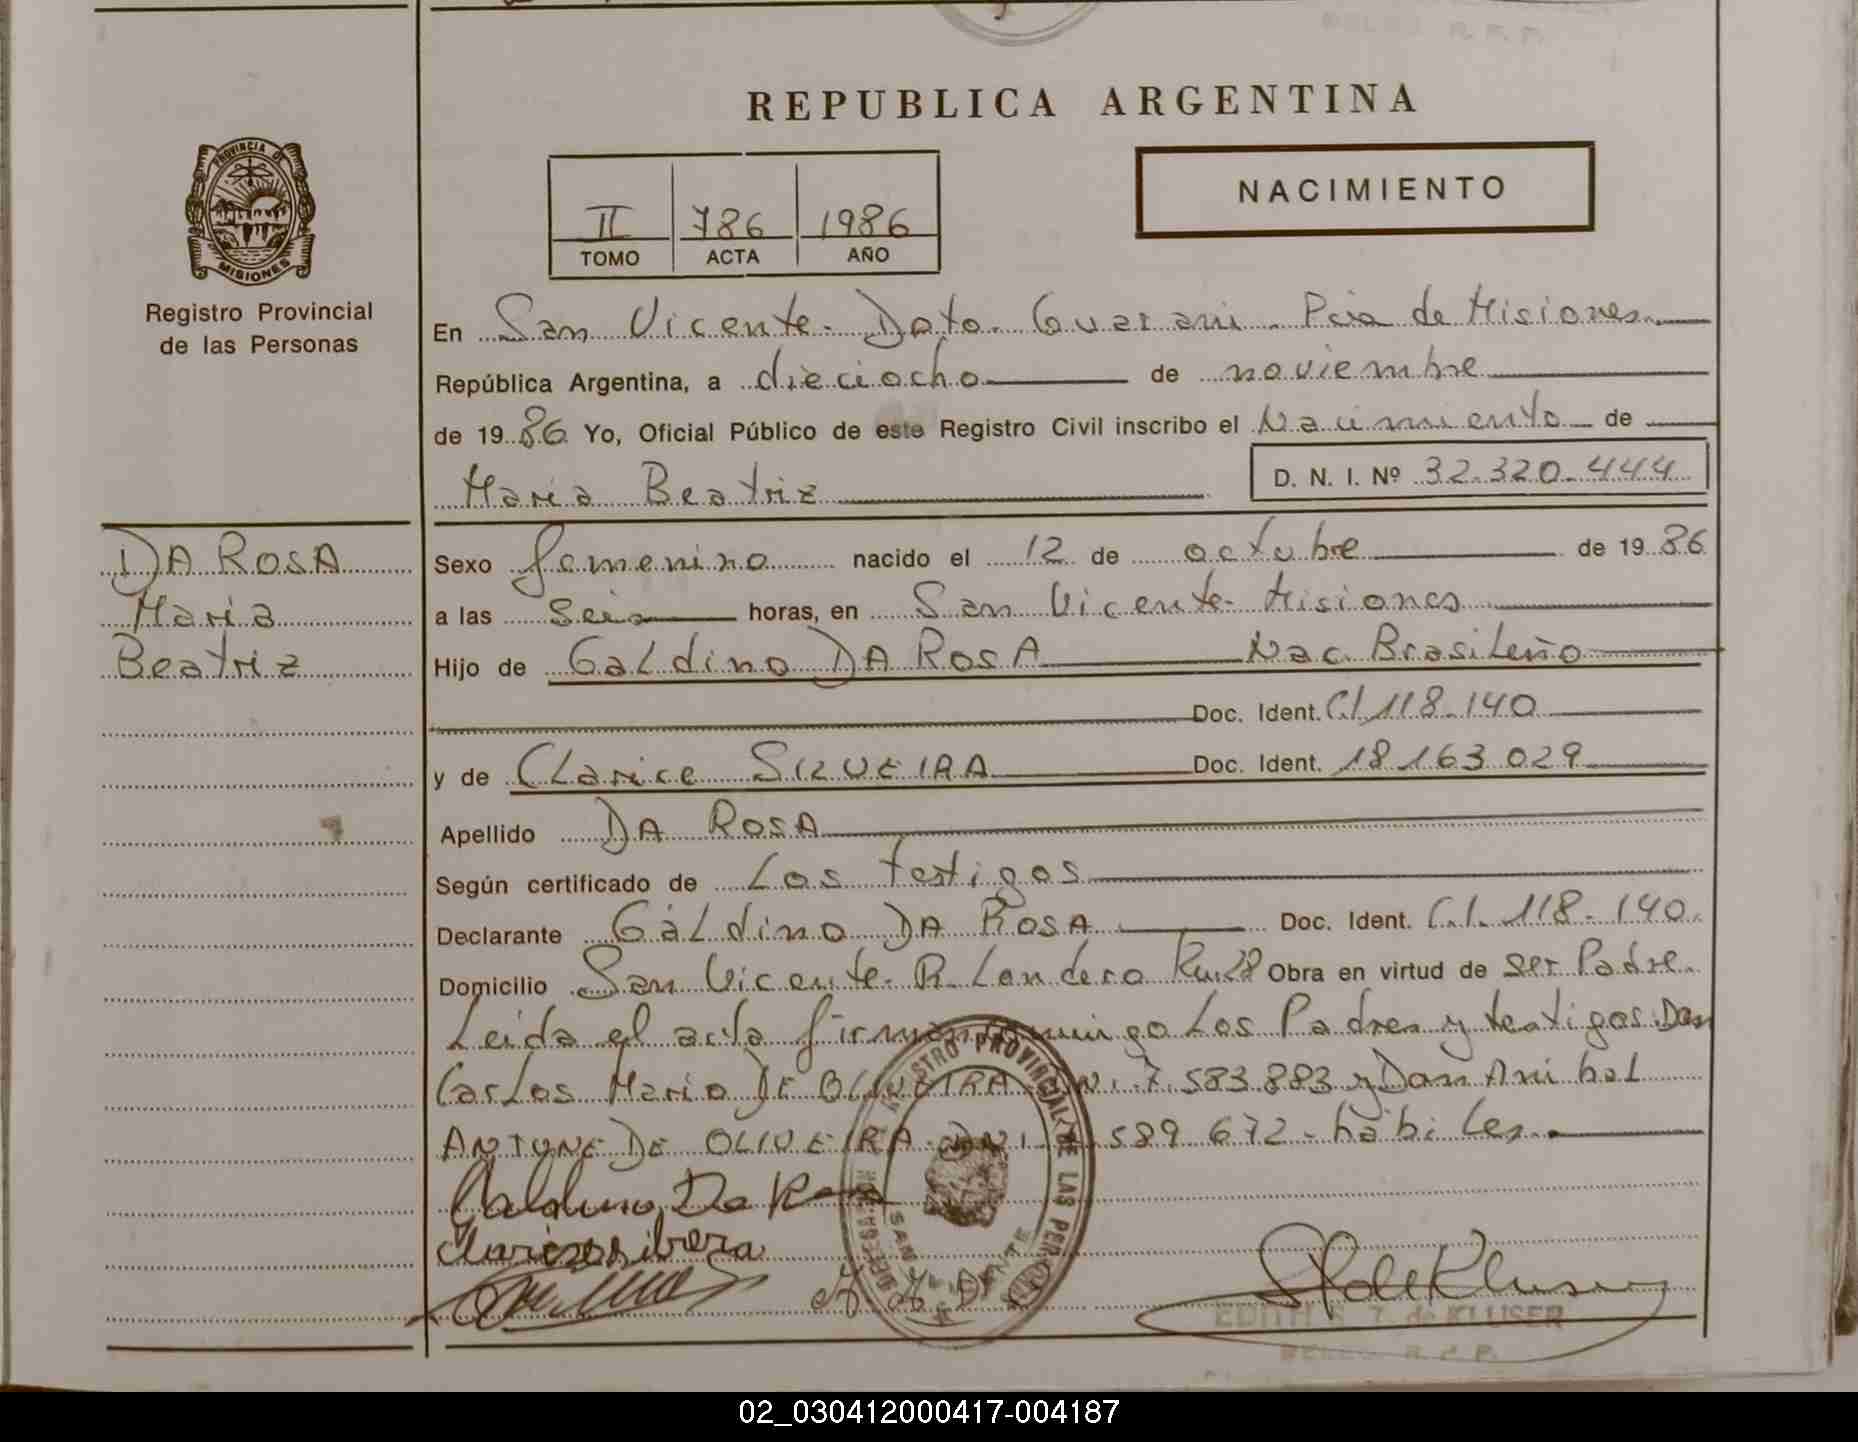 REPUBLICA ARGENTINA
PROVINCIA DE
MISIONES
Registro Provincial
de las Personas
II 786 1986
TOMO ACTA AÑO
NACIMIENTO
En San Vicente. Dpto. Guarani. Pcia de Misiones
República Argentina, a dieciocho de noviembre
de 19 86 Yo, Oficial Público de este Registro Civil inscribo el Nacimiento de
Maria Beatriz D. N. I. Nº 32.320.444
DA ROSA
Maria
Beatriz
Sexo femenino nacido el 12 de octubre de 19 86
a las seis horas, en San Vicente- Misiones
Hijo de Galdino DA ROSA Nac. Brasileño
Doc. Ident. C.I. 118.140
y de Clarice SILVEIRA Doc. Ident. 18.163.029
Apellido DA ROSA
Según certificado de Los testigos
Declarante Galdino DA ROSA Doc. Ident. C.I. 118.140.
Domicilio San Vicente. Obra en virtud de ser Padre.
Leida el acta firman conmigo Los Padres y testigos Don
Carlos Mario DE OLIVEIRA 7.583.883 y Don Anibal
ANTUNE DE OLIVEIRA DNI 589 672 - hábiles.
REGISTRO PROVINCIAL DE LAS PER
SAN VICENTE
Galdino Da Rosa
EDITH de KLUSER
02_030412000417-004187